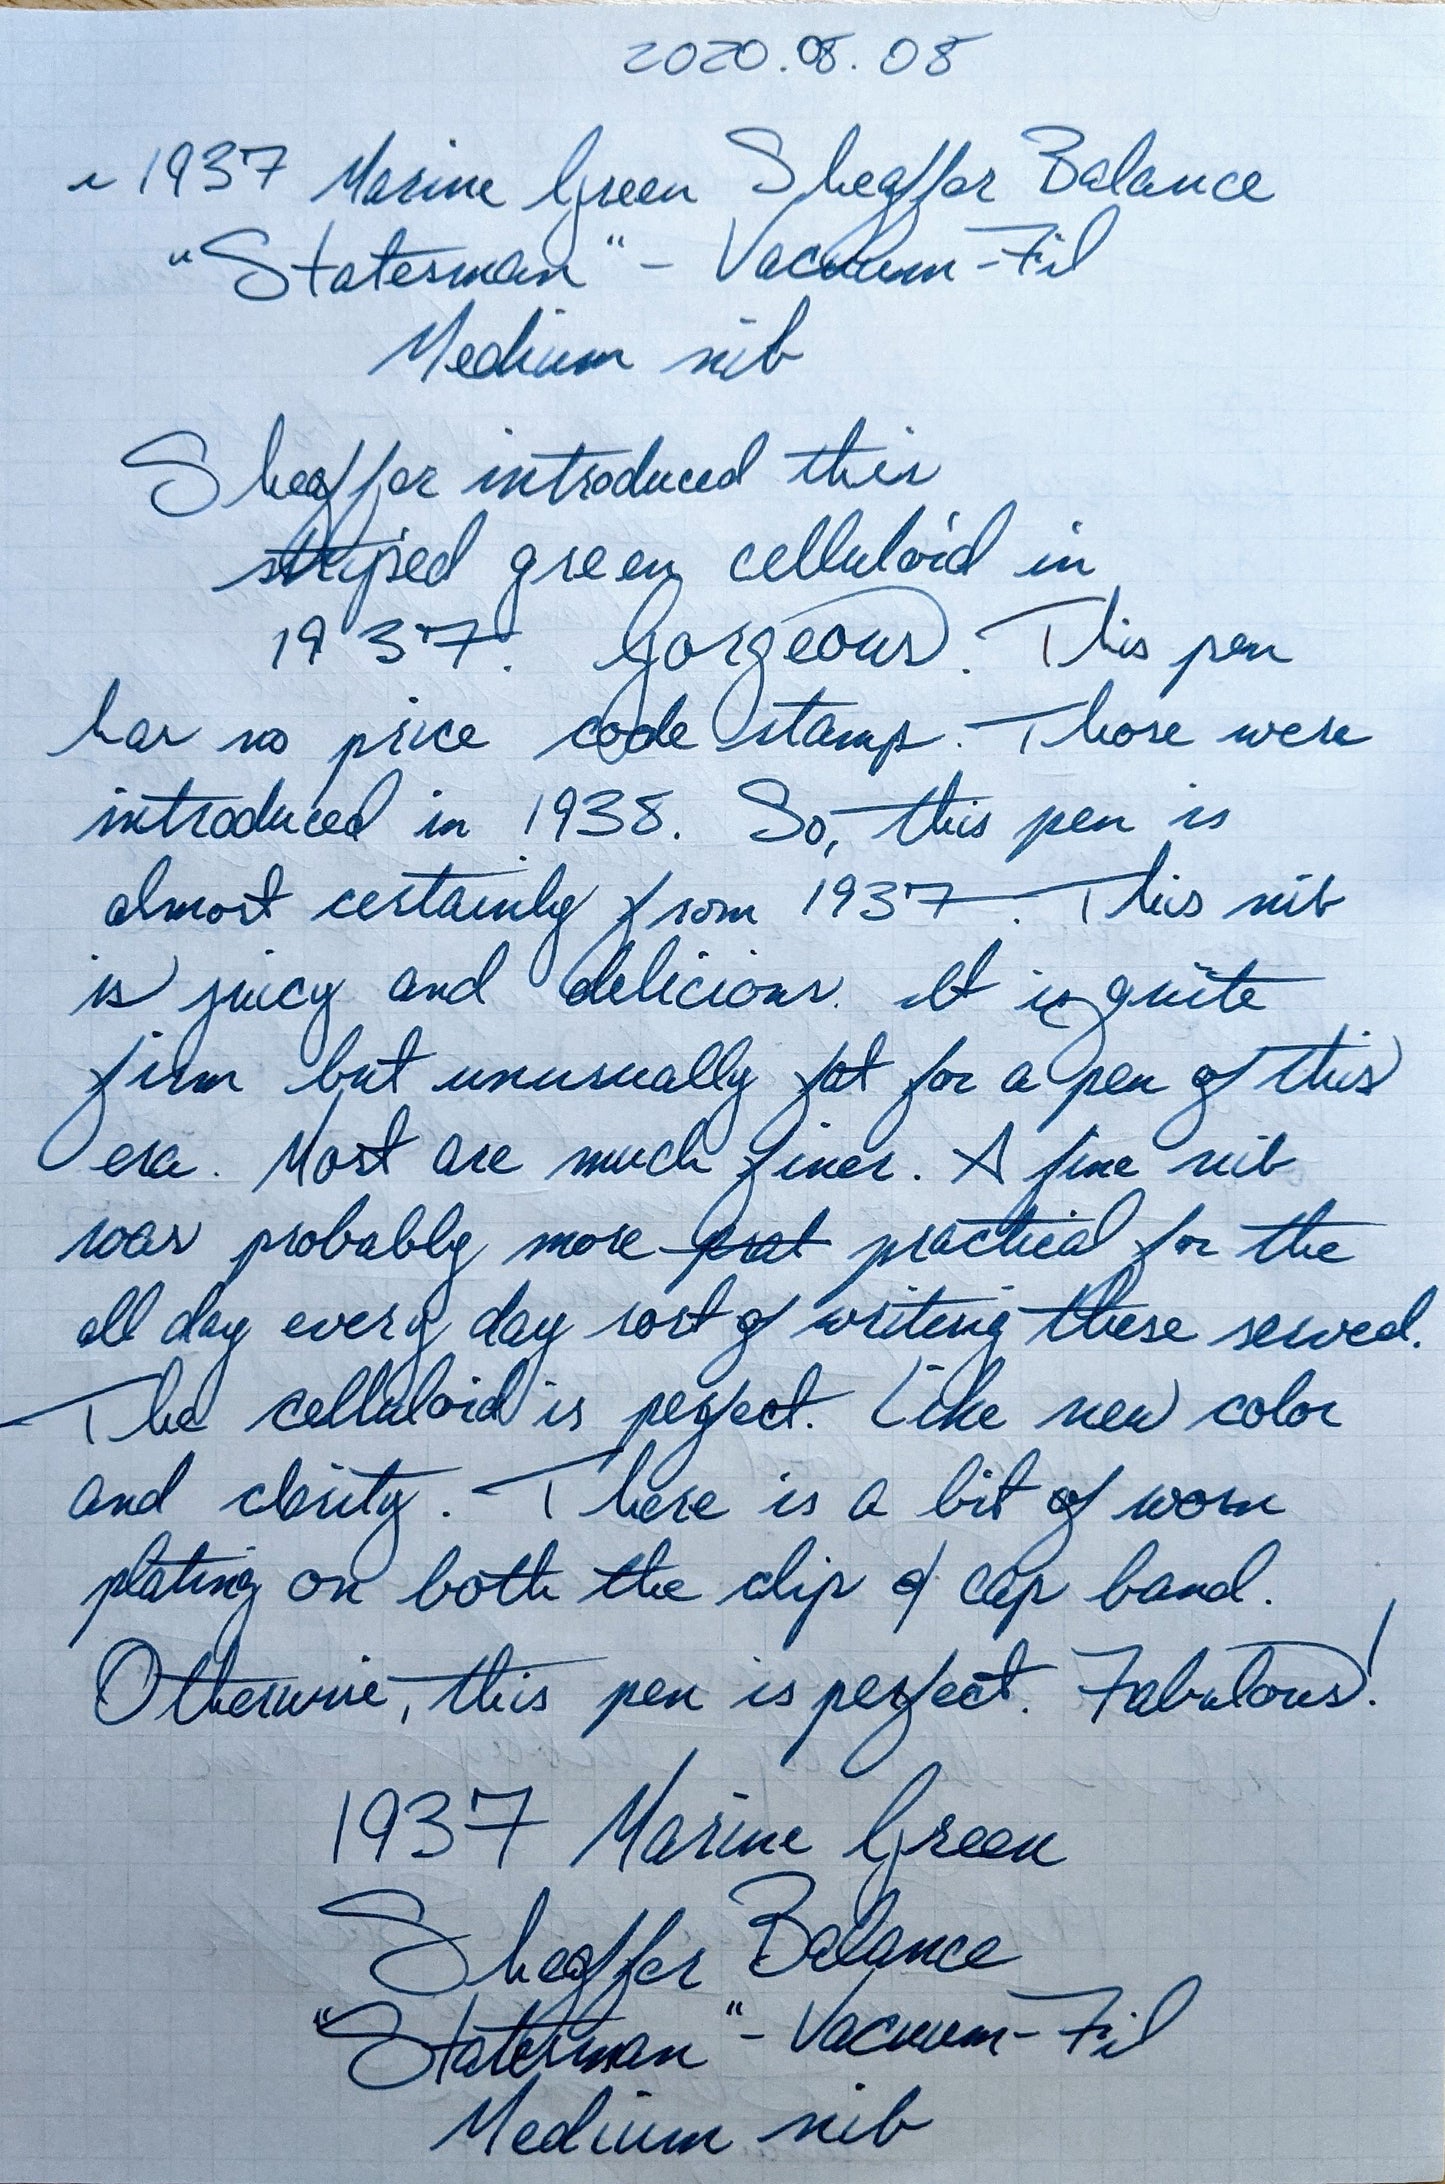 2020.08.08
~1937 Marine Green Sheaffer Balance
"Statesman" - Vacuum-Fil
Medium nib
Sheaffer introduced this
striped green celluloid in
1937. Gorgeous. This pen
has no price code stamp. Those were
introduced in 1938. So, this pen is
almost certainly from 1937. This nib
is juicy and delicious. It is quite
firm but unusually fat for a pen of this
era. Most are much finer. A fine nib
was probably more prat practical for the
all day every day sort of writing these served.
The celluloid is perfect. Like new color
and clarity. There is a bit of worn
plating on both the clip & cap band.
Otherwise, this pen is perfect. Fabulous!
1937 Marine Green
Sheaffer Balance
"Statesman" - Vacuum-Fil
Medium nib